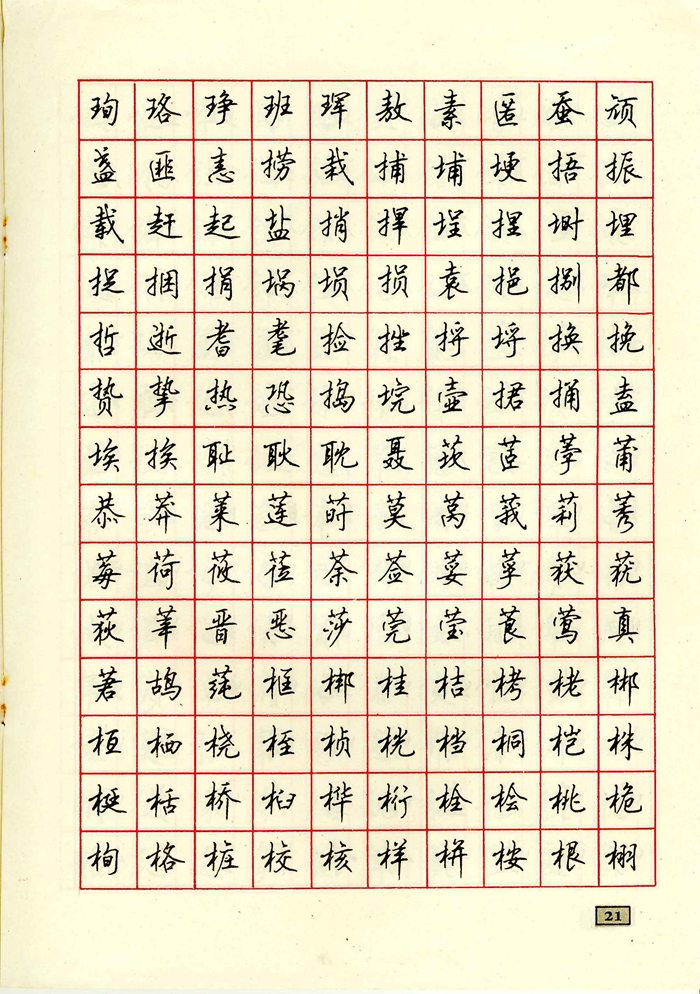 珣珞琤班珲敖素匿蚕顽
盏匪恚捞栽捕埔埂捂振
载赶起盐捎捍埕捏埘埋
捉捆捐埚埙损袁挹捌都
哲逝耆耄捡挫捋埒换挽
贽挚热恐捣垸壶捃捅盍
埃挨耻耿耽聂莰茝荸莆
恭莽莱莲莳莫莴莪莉莠
莓荷莜莅荼莶荽莩获莸
荻莘晋恶莎莞莹莨莺真
莙鸪莼框梆桂桔栲栳郴
桓栖桡桎桢桄档桐桤株
梃栝桥桕桦桁栓桧桃桅
栒格桩校核样栟桉根栩
21